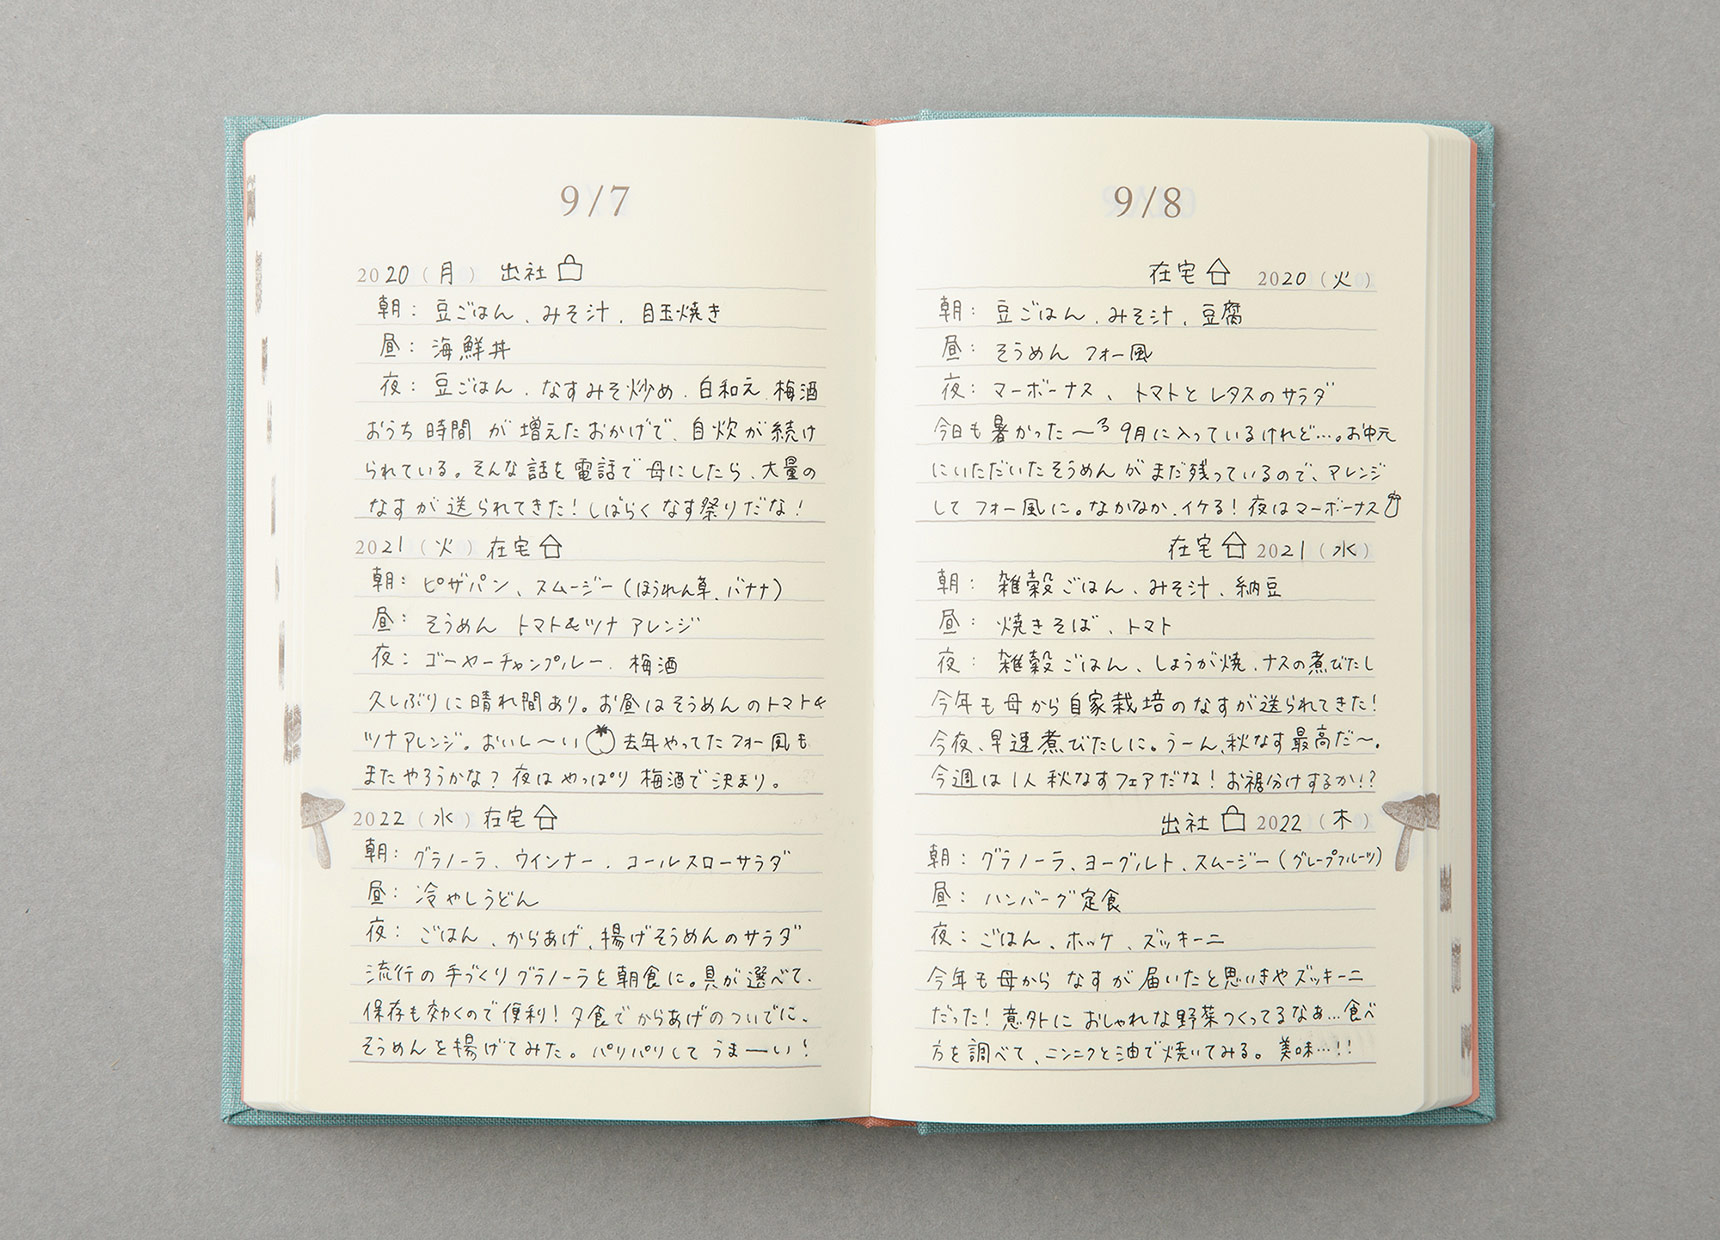 9/7
2020（月） 出社
朝：豆ごはん、みそ汁、目玉焼き
昼：海鮮丼
夜：豆ごはん、なすみそ炒め、白和え、梅酒
おうち時間が増えたおかげで、自炊が続け
られている。そんな話を電話で母にしたら、大量の
なすが送られてきた！しばらくなす祭りだな！
2021（火） 在宅
朝：ピザパン、スムージー（ほうれん草、バナナ）
昼：そうめん トマト&ツナアレンジ
夜：ゴーヤーチャンプルー、梅酒
久しぶりに晴れ間あり。お昼はそうめんのトマト&
ツナアレンジ。おいし〜い 去年やってたフォー風も
またやろうかな？夜はやっぱり梅酒で決まり。
2022（水） 在宅
朝：グラノーラ、ウインナー、コールスローサラダ
昼：冷やしうどん
夜：ごはん、からあげ、揚げそうめんのサラダ
流行の手づくりグラノーラを朝食に。具が選べて、
保存も効くので便利！夕食でからあげのついでに、
そうめんを揚げてみた。パリパリしてうまーーい！
9/8
在宅 2020（火）
朝：豆ごはん、みそ汁、豆腐
昼：そうめん フォー風
夜：マーボーナス、トマトとレタスのサラダ
今日も暑かった〜 9月に入っているけれど…。お中元
にいただいたそうめんがまだ残っているので、アレンジ
してフォー風に。なかなか、イケる！夜はマーボーナス
在宅 2021（水）
朝：雑穀ごはん、みそ汁、納豆
昼：焼きそば、トマト
夜：雑穀ごはん、しょうが焼、ナスの煮びたし
今年も母から自家栽培のなすが送られてきた！
今夜、早速煮びたしに。うーん、秋なす最高だ〜。
今週は1人秋なすフェアだな！お裾分けするか！？
出社 2022（木）
朝：グラノーラ、ヨーグルト、スムージー（グレープフルーツ）
昼：ハンバーグ定食
夜：ごはん、ホッケ、ズッキーニ
今年も母からなすが届いたと思いきやズッキーニ
だった！意外におしゃれな野菜つくってるなぁ…食べ
方を調べて、ニンニクと油で焼いてみる。美味…！！